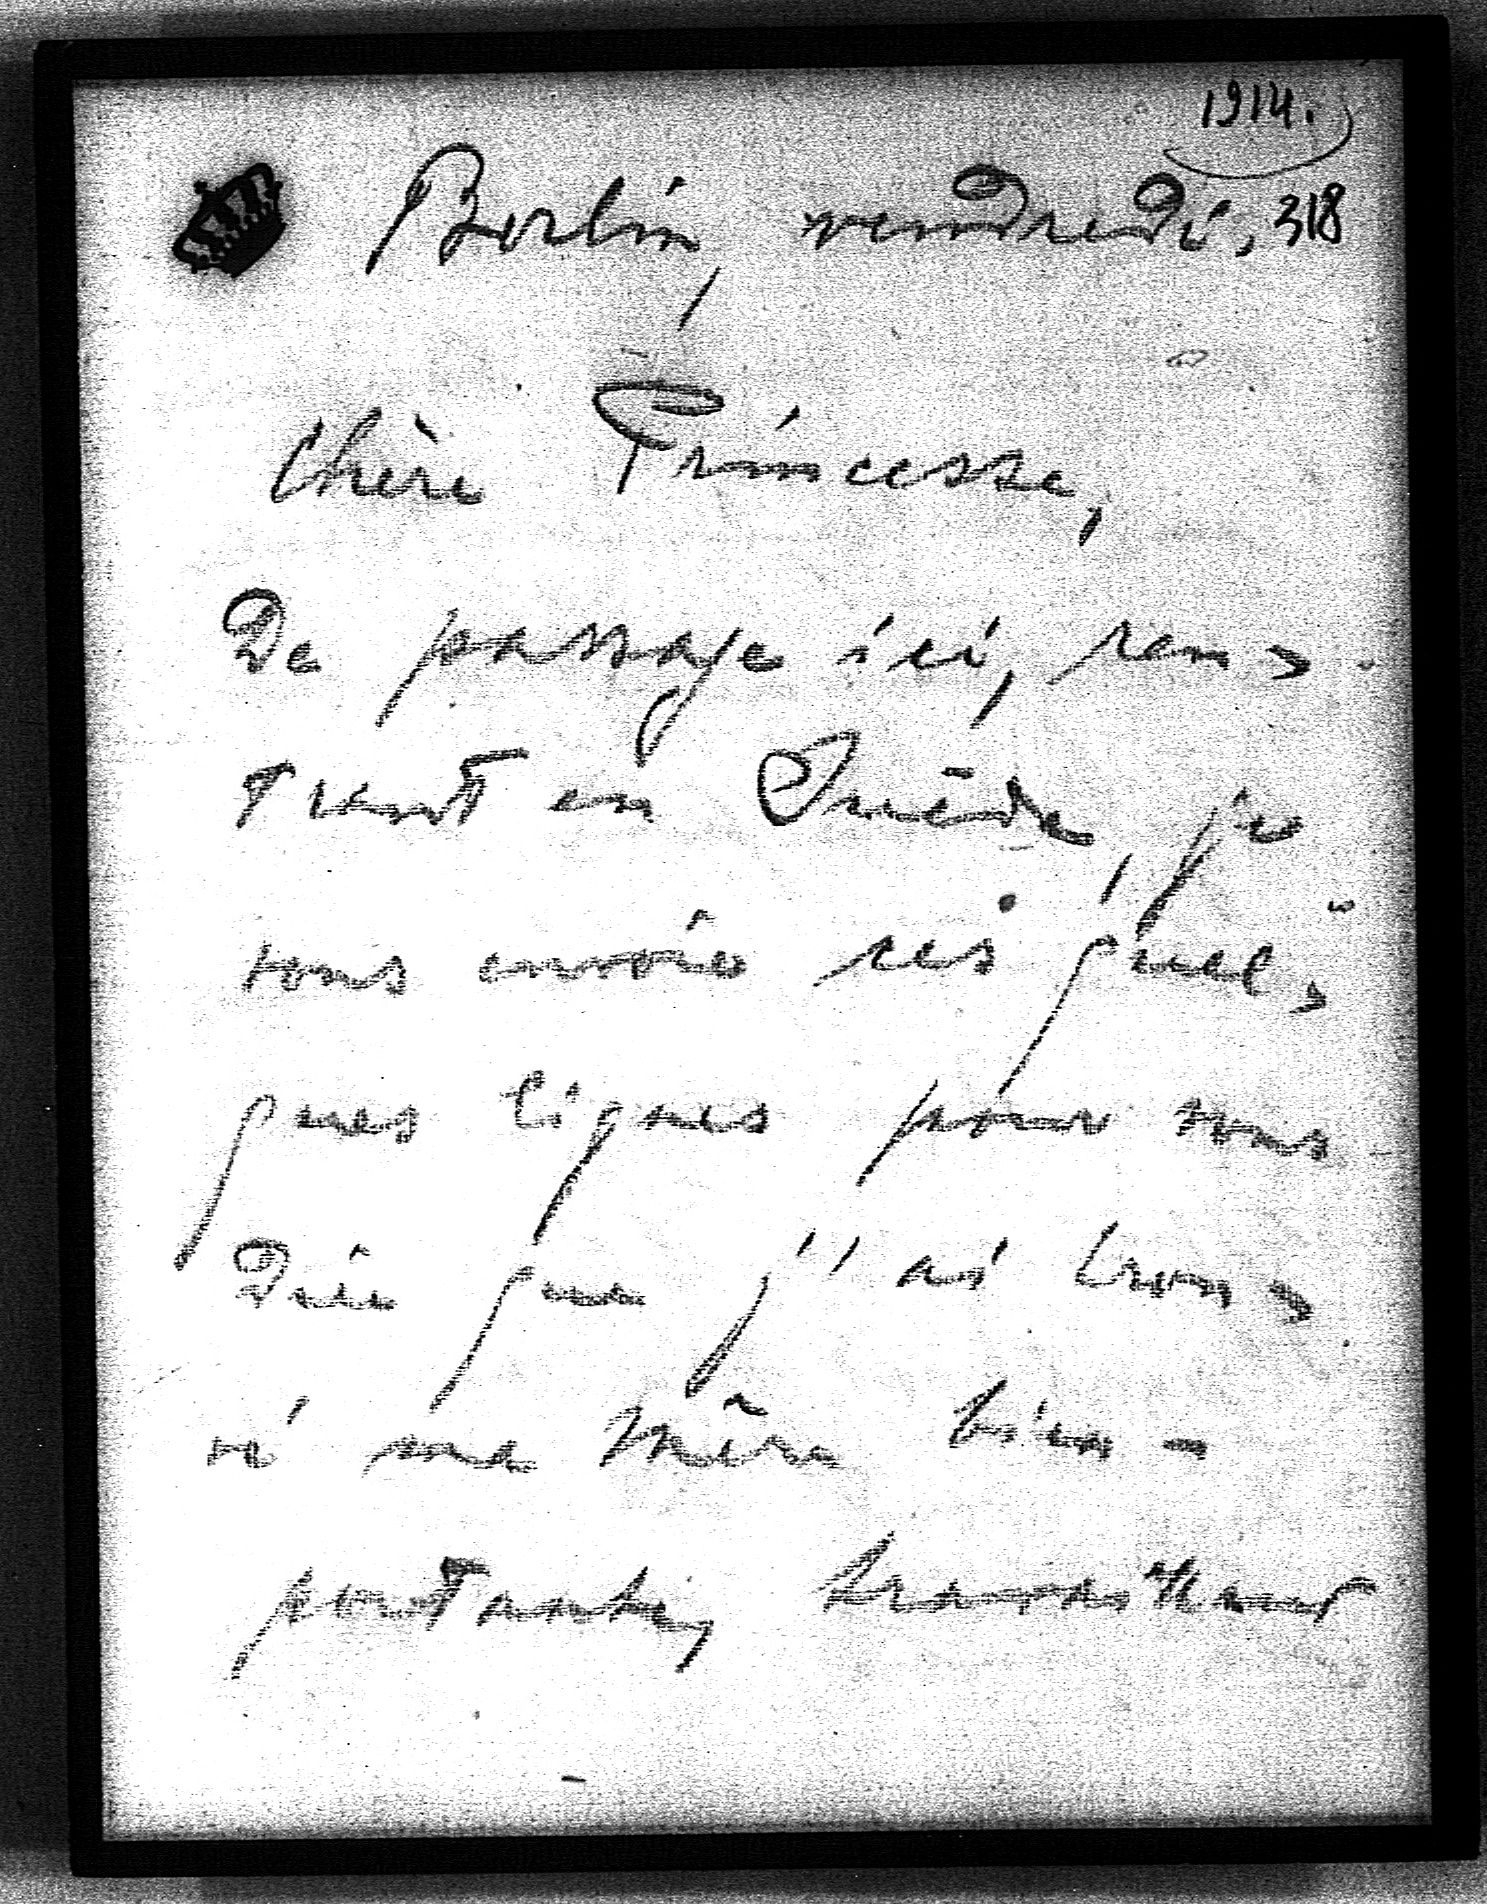 1914.
Berlin, vendredi, 318
Chère Princesse,
De passage ici, ren-
trant en Suède, je
vous envoie ces quel-
ques lignes pour vous
dire que j'ai trou-
vé ma Mère bien-
portante,